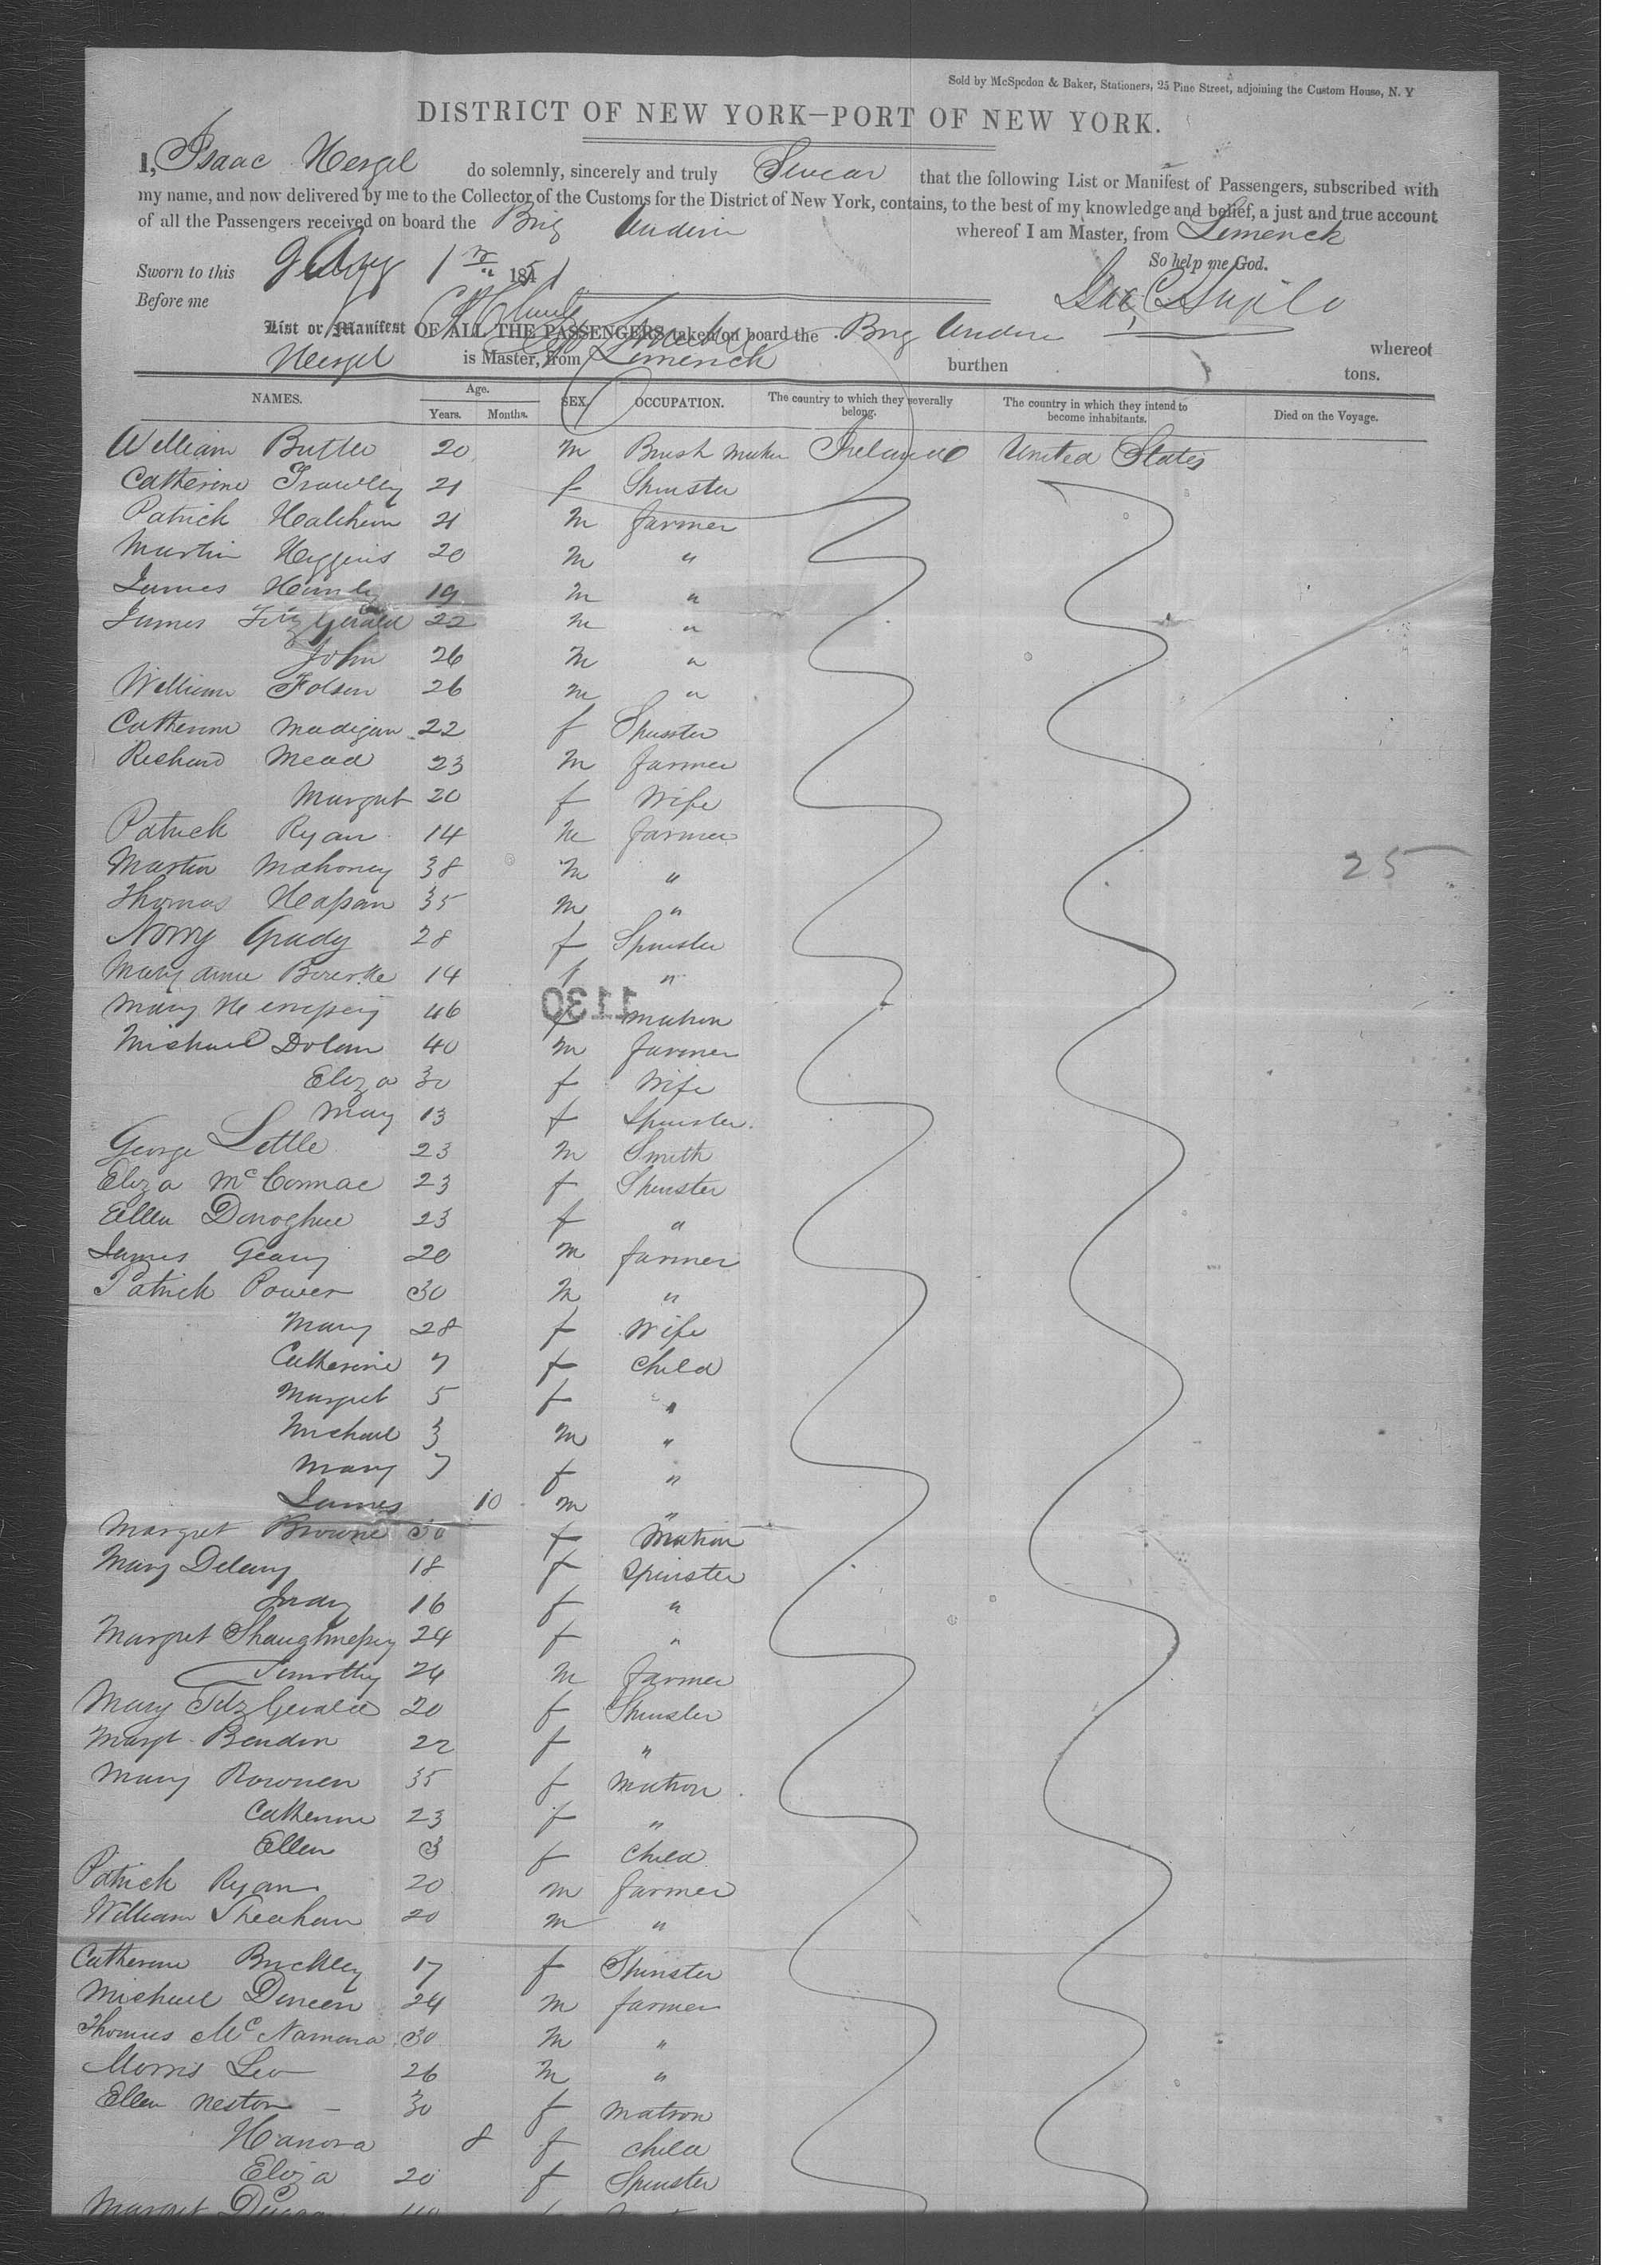 Sold by McSpedon & Baker, Stationers, 25 Pine Street, adjoining the Custom House, N. Y
DISTRICT OF NEW YORK—PORT OF NEW YORK.
I, Isaac do solemnly, sincerely and truly Swear that the following List or Manifest of Passengers, subscribed with
my name, and now delivered by me to the Collector of the Customs for the District of New York, contains, to the best of my knowledge and belief, a just and true account
of all the Passengers received on board the Brig whereof I am Master, from Limerick
Sworn to this 1851 So help me God.
Before me
List or Manifest OF ALL THE PASSENGERS taken on board the Brig whereof
is Master, from Limerick burthen tons.
NAMES. Age. Years. Months. SEX. OCCUPATION. The country to which they severally belong. The country in which they intend to become inhabitants. Died on the Voyage.
William Butler 20 m Brush maker Ireland United States
Catherine 21 f Spinster
Patrick 21 m farmer
Martin Higgins 20 m "
James 19 m "
James Fitzgerald 22 m "
John 26 m "
William 26 m "
Catherine Madigan 22 f Spinster
Richard Mead 23 m farmer
Margret 20 f Wife
Patrick Ryan 14 m farmer
Martin Mahoney 38 m "
25
Thomas 35 m "
Norry Grady 28 f Spinster
Mary Anne Bourke 14 f "
Mary 46 f matron
1130
Michael Dolan 40 m farmer
Eliza 30 f Wife
Mary 13 f Spinster.
George Little 23 m Smith
Eliza McCormac 23 f Spinster
Ellen Donoghue 23 f "
James Geary 20 m farmer
Patrick Power 30 m "
Mary 28 f Wife
Catherine 7 f Child
Margret 5 f "
Michael 3 m "
Mary 7 f "
James 10 m "
Margret Browne 30 f Matron
Mary Delany 18 f Spinster
Judy 16 f "
Margret Shaughnessy 24 f "
Timothy 24 m farmer
Mary FitzGerald 20 f Spinster
Margt 22 f "
Mary 35 f Matron
Catherine 23 f "
Ellen 3 f Child
Patrick Ryan 20 m farmer
William Sheahan 20 m "
Catherine Buckley 17 f Spinster
Michael Dineen 24 m farmer
Thomas McNamara 30 m "
Morris 26 m "
Ellen Neston 30 f matron
Hanora 8 f child
Eliza 20 f Spinster
Margret